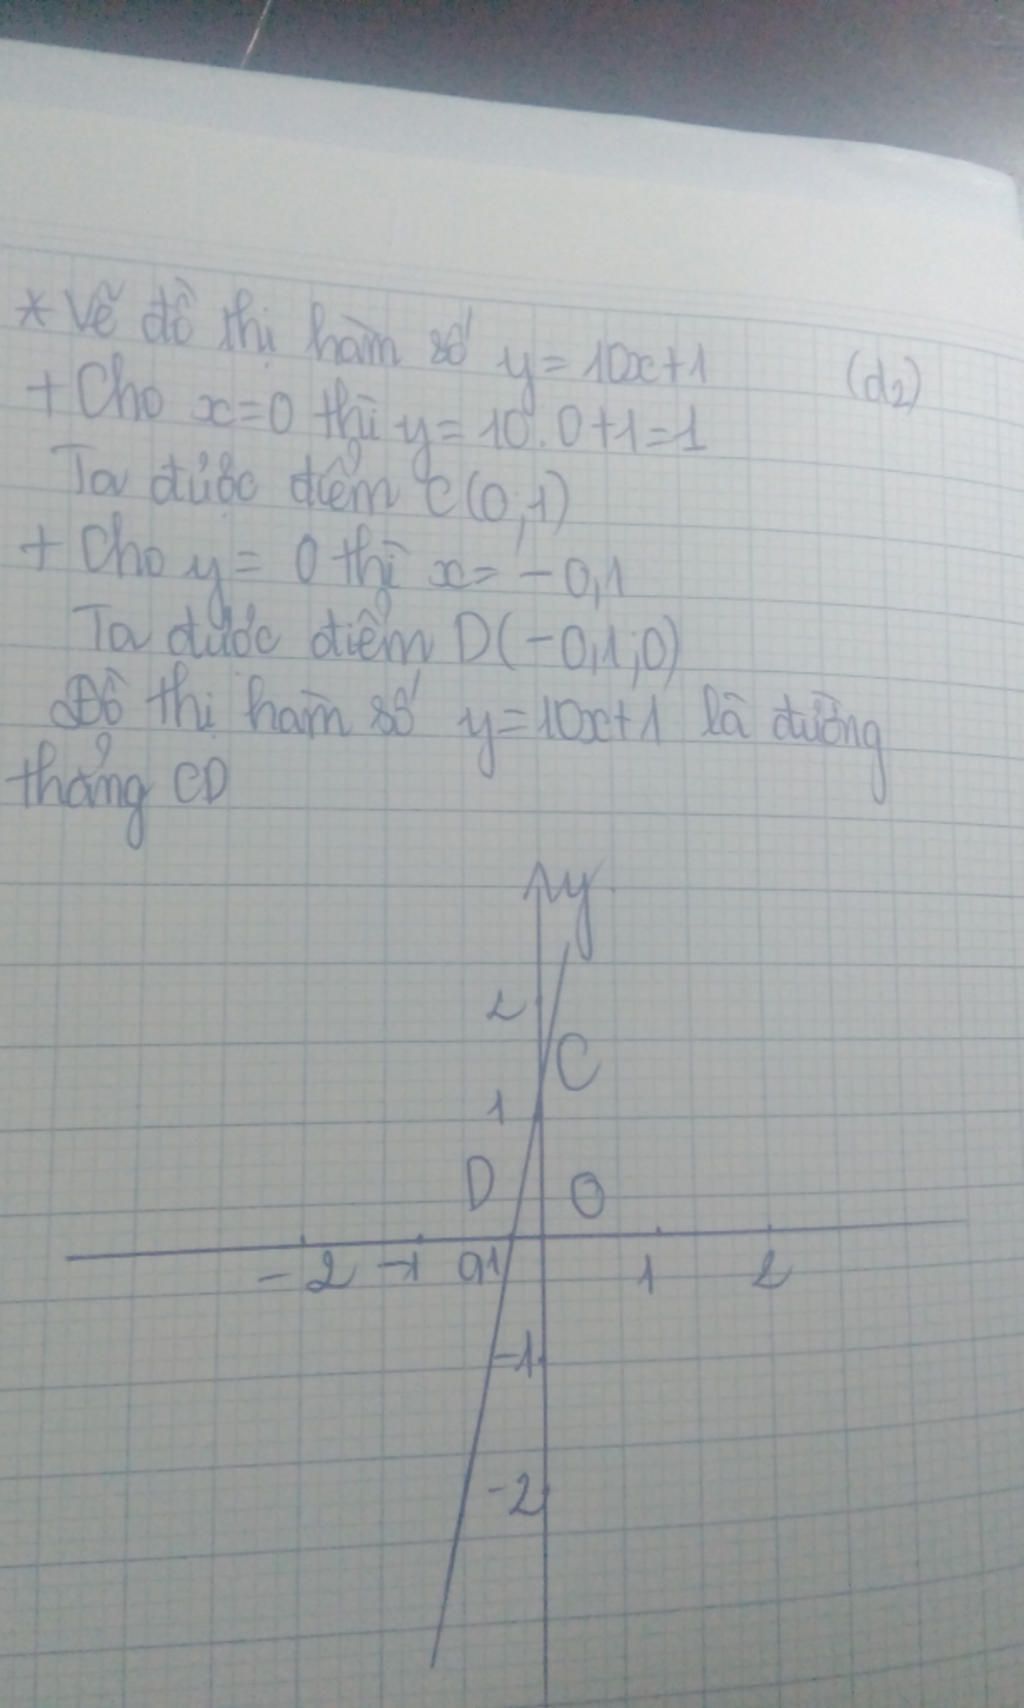 * Vẽ đồ thị hàm số y = 10x+1 (d2)
+ Cho x=0 thì y = 10.0+1=1
Ta được điểm C(0;1)
+ Cho y = 0 thì x = -0,1
Ta được điểm D(-0,1;0)
Đồ thị hàm số y=10x+1 là đường
thẳng CD
y
2
C
1
D O
-2 -1 0,1 1 2
-1
-2